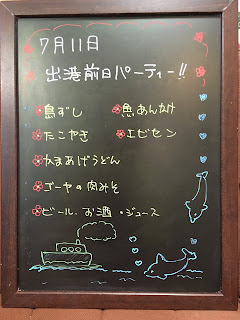 7月11日
出港前日パーティー!!
島ずし
魚あんかけ
たこやき
エビセン
かまあげうどん
ゴーヤの肉みそ
ビール・お酒・ジュース